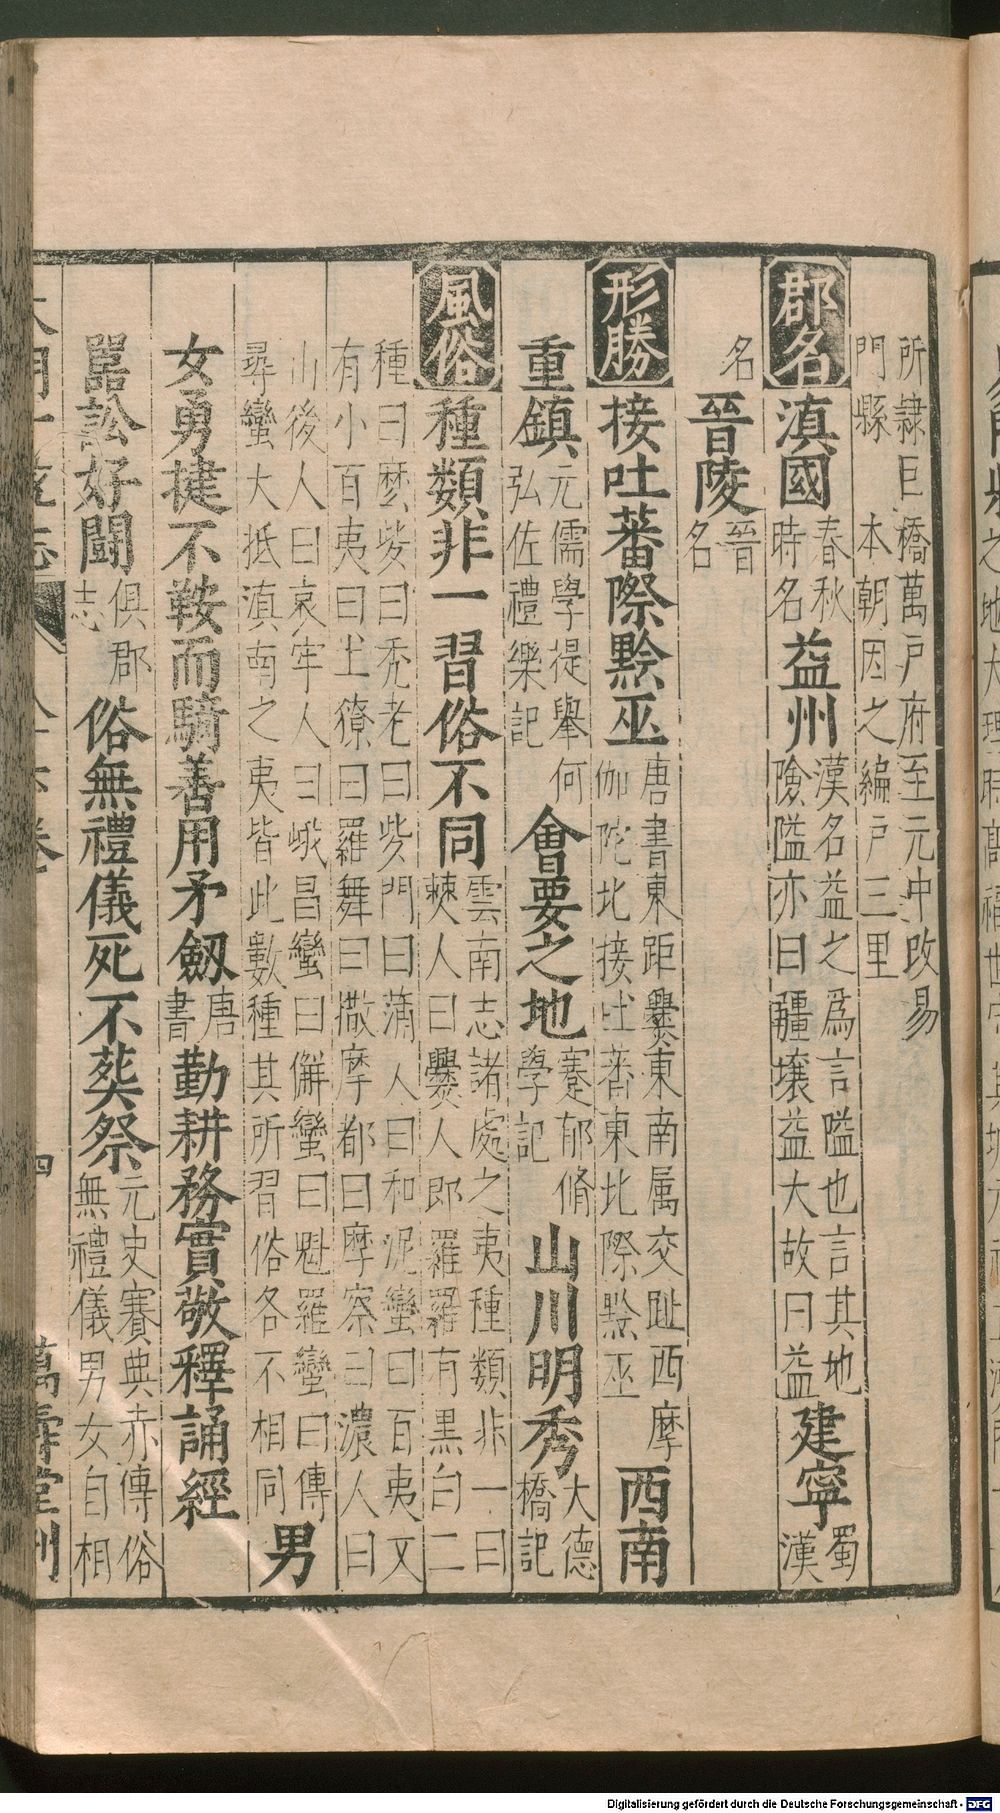 所隷巨橋萬户府至元中改易
門縣　本朝因之編户三里
郡名 滇國 春秋時名 益州 漢名益之爲言嗌也言其地險隘亦曰疆壤益大故曰益 建寧 蜀漢
名 晉陵 晉名
形勝 接吐蕃際黔巫 唐書東距爨東南属交趾西摩伽陀北接吐蕃東北際黔巫 西南
重鎮 元儒學提舉何弘佐禮樂記 會要之地 蹇郁脩學記 山川明秀 大德橋記
風俗 種類非一習俗不同 雲南志諸處之夷種類非一曰僰人曰爨人即羅羅有黒白二
種曰麽些曰禿老曰些門曰蒲人曰和泥蠻曰百夷又
有小百夷曰土獠曰羅舞曰撒摩都曰摩察曰濃人曰
山後人曰哀牢人曰峨昌蠻曰懈蠻曰魁羅蠻曰傳
尋蠻大抵滇南之夷皆此數種其所習俗各不相同 男
女勇揵不鞍而騎善用矛劔 唐書 勤耕務實敬釋誦經
嚚訟好鬪 俱郡志 俗無禮儀死不葬祭 元史賽典赤傳俗無禮儀男女自相
大明一統志 八十六卷 四 萬壽堂刊
Digitalisierung gefördert durch die Deutsche Forschungsgemeinschaft - DFG